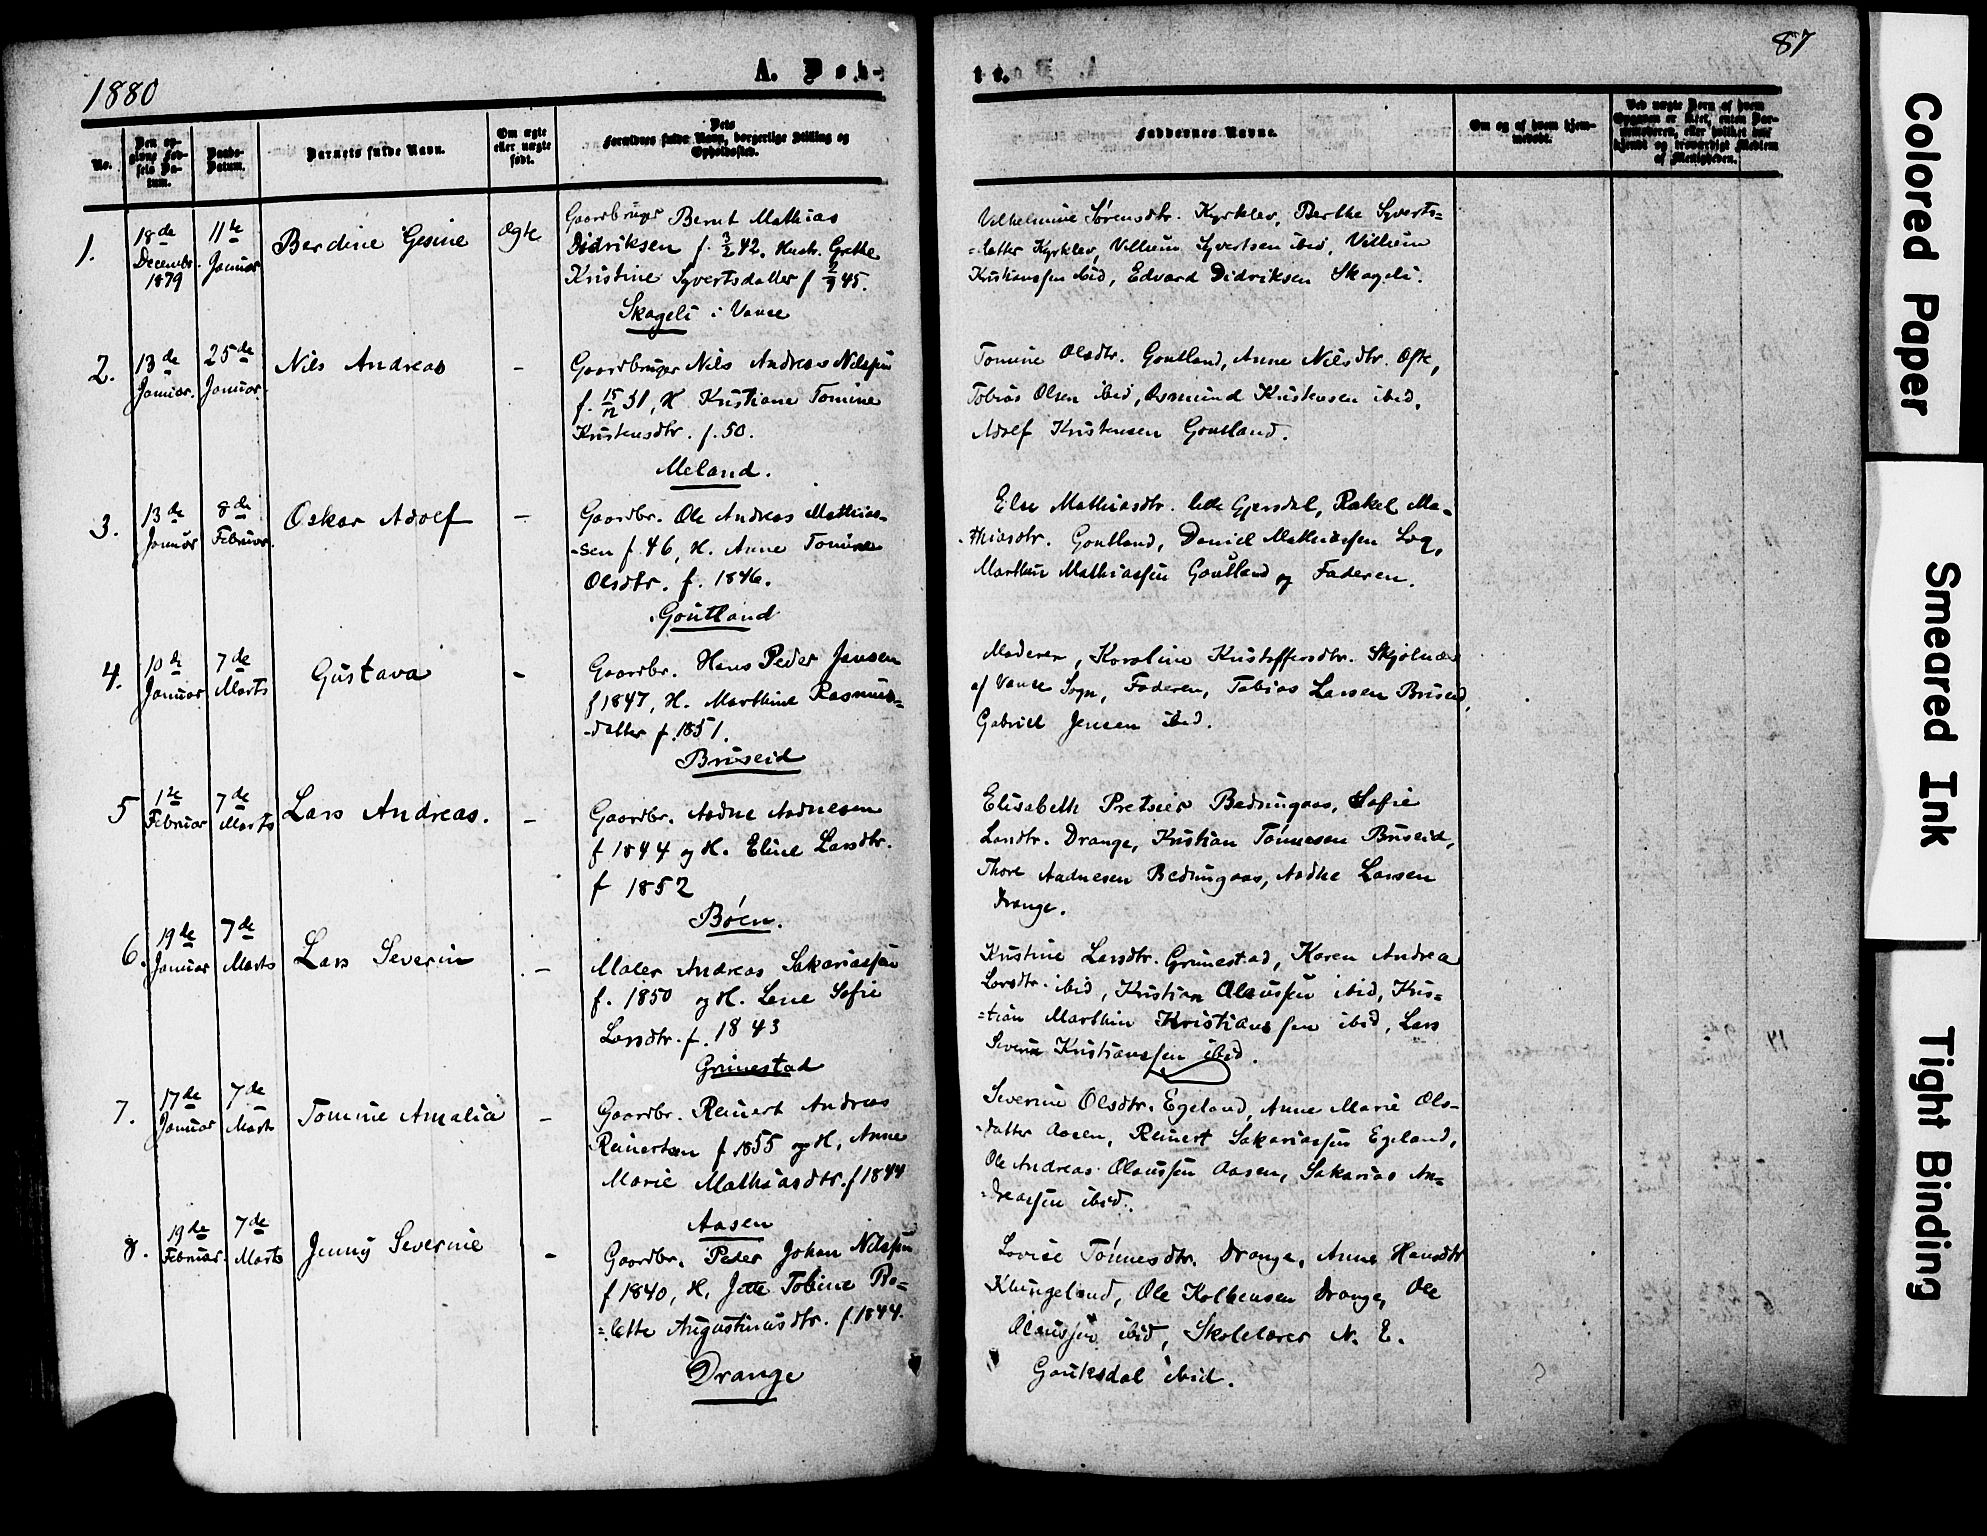 1880
A. Døb-
te.
87
No.
Den op-
givne Fød-
sels Da-
tum.
Daabs-
Datum.
Barnets fulde Navn.
Om ægte
eller uægte
født.
Dets
Forældres fulde Navn, borgerlige Stilling og
Opholdssted.
Faddernes Navne.
Om og af hvem hjem-
medøbt.
Ved uægte Børn af hvem
Opgaven er skeet, enten Bar-
nemoderen, eller hvilket som
kjendt og troværdigt Medlem
af Menigheden.
1.
18de
Decembr.
1879
11te
Januar
Berdine Gesine
Ægte
Gaardbruger Bernt Mathias
Didriksen f. 3/2 42. Hust. Grethe
Kristine Syvertsdatter f 2/9 45.
Skageli i Vanse
Vilhelmine Sørensdtr. Kyrklev, Berthe Syverts=
=datter Kyrklev, Villum Syvertsen ibid, Villum
Kristianssen ibid, Edvard Didriksen Skageli.
2.
13de
Januar.
25de
Januar.
Nils Andreas
-
Gaardbruger Nils Andreas Nilssen
f. 15/12 31, H. Kristiane Tomine
Kristensdtr. f. 50.
Meland.
Tomine Olsdtr. Goutland, Anne Nilsdtr. Øfte,
Tobias Olsen ibid, Asmund Kristensen ibid,
Adolf Kristensen Goutland.
3.
13de
Januar
8de
Februar.
Oskar Adolf
-
Gaardbr. Ole Andreas Mathias-
-sen f. 46, H. Anne Tomine
Olsdtr. f. 1846.
Goutland
Else Mathiasdtr. lille Gjersdal, Rakel Ma-
-thiasdtr. Goutland, Daniel Mathiassen Log,
Marthin Mathiassen Goutland og Faderen.
4.
10de
Januar
7de
Marts
Gustava
-
Gaardbr. Hans Peder Jensen
f 1847, H. Marthine Rasmus=
-datter f. 1851.
Briseid
Moderen, Karoline Kristoffersdtr. Skjolnes
af Vanse Sogn, Faderen, Tobias Larsen Briseid,
Gabriel Jensen ibid.
5
1te
Februar
7de
Marts
Lars Andreas.
-
Gaardbr. Aadne Aadnesen
f 1844 og H. Eline Larsdtr.
f 1852
Bøen.
Elisabeth Bedringaas, Sofie
Larsdtr. Drange, Kristian Tønnesen Briseid,
Thore Aadnesen Bedringaas, Aadne Larsen
Drange.
6.
19de
Januar
7de
Marts
Lars Severin
-
Maler Andreas Sakariassen
f. 1850 og H. Lene Sofie
Larsdtr. f. 1843
Grimestad
Kristine Larsdtr. Grimestad, Karen Andrea
Larsdtr. ibid, Kristian Olaussen ibid, Kris=
=tian Marthin Kristianssen ibid, Lars
Severin Kristianssen ibid.
7.
17de
Januar
7de
Marts
Tomine Amalia
-
Gaardbr. Reinert Andreas
Reinertsen f. 1855 og H. Anne
Marie Mathiasdtr. f 1844
Aasen
Severine Olsdtr. Egeland, Anne Marie Ols-
-datter Aasen, Reinert Sakariassen Egeland,
Ole Andreas Olaussen Aasen, Sakarias An=
=dreassen ibid.
8.
19de
Februar.
7de
Marts
Jenny Severine
-
Gaardbr. Peder Johan Nilssen
f 1840, H. Jette Tobine Ro=
=lette Augustinusdtr. f. 1844.
Drange
Lovise Tønnesdtr. Drange, Anne Hansdtr
Klungeland, Ole Kolbensen Drange, Ole
Olaussen ibid, Skolelærer N. E.
Gauksdal ibid.
Colored Paper
Smeared Ink
Tight Binding